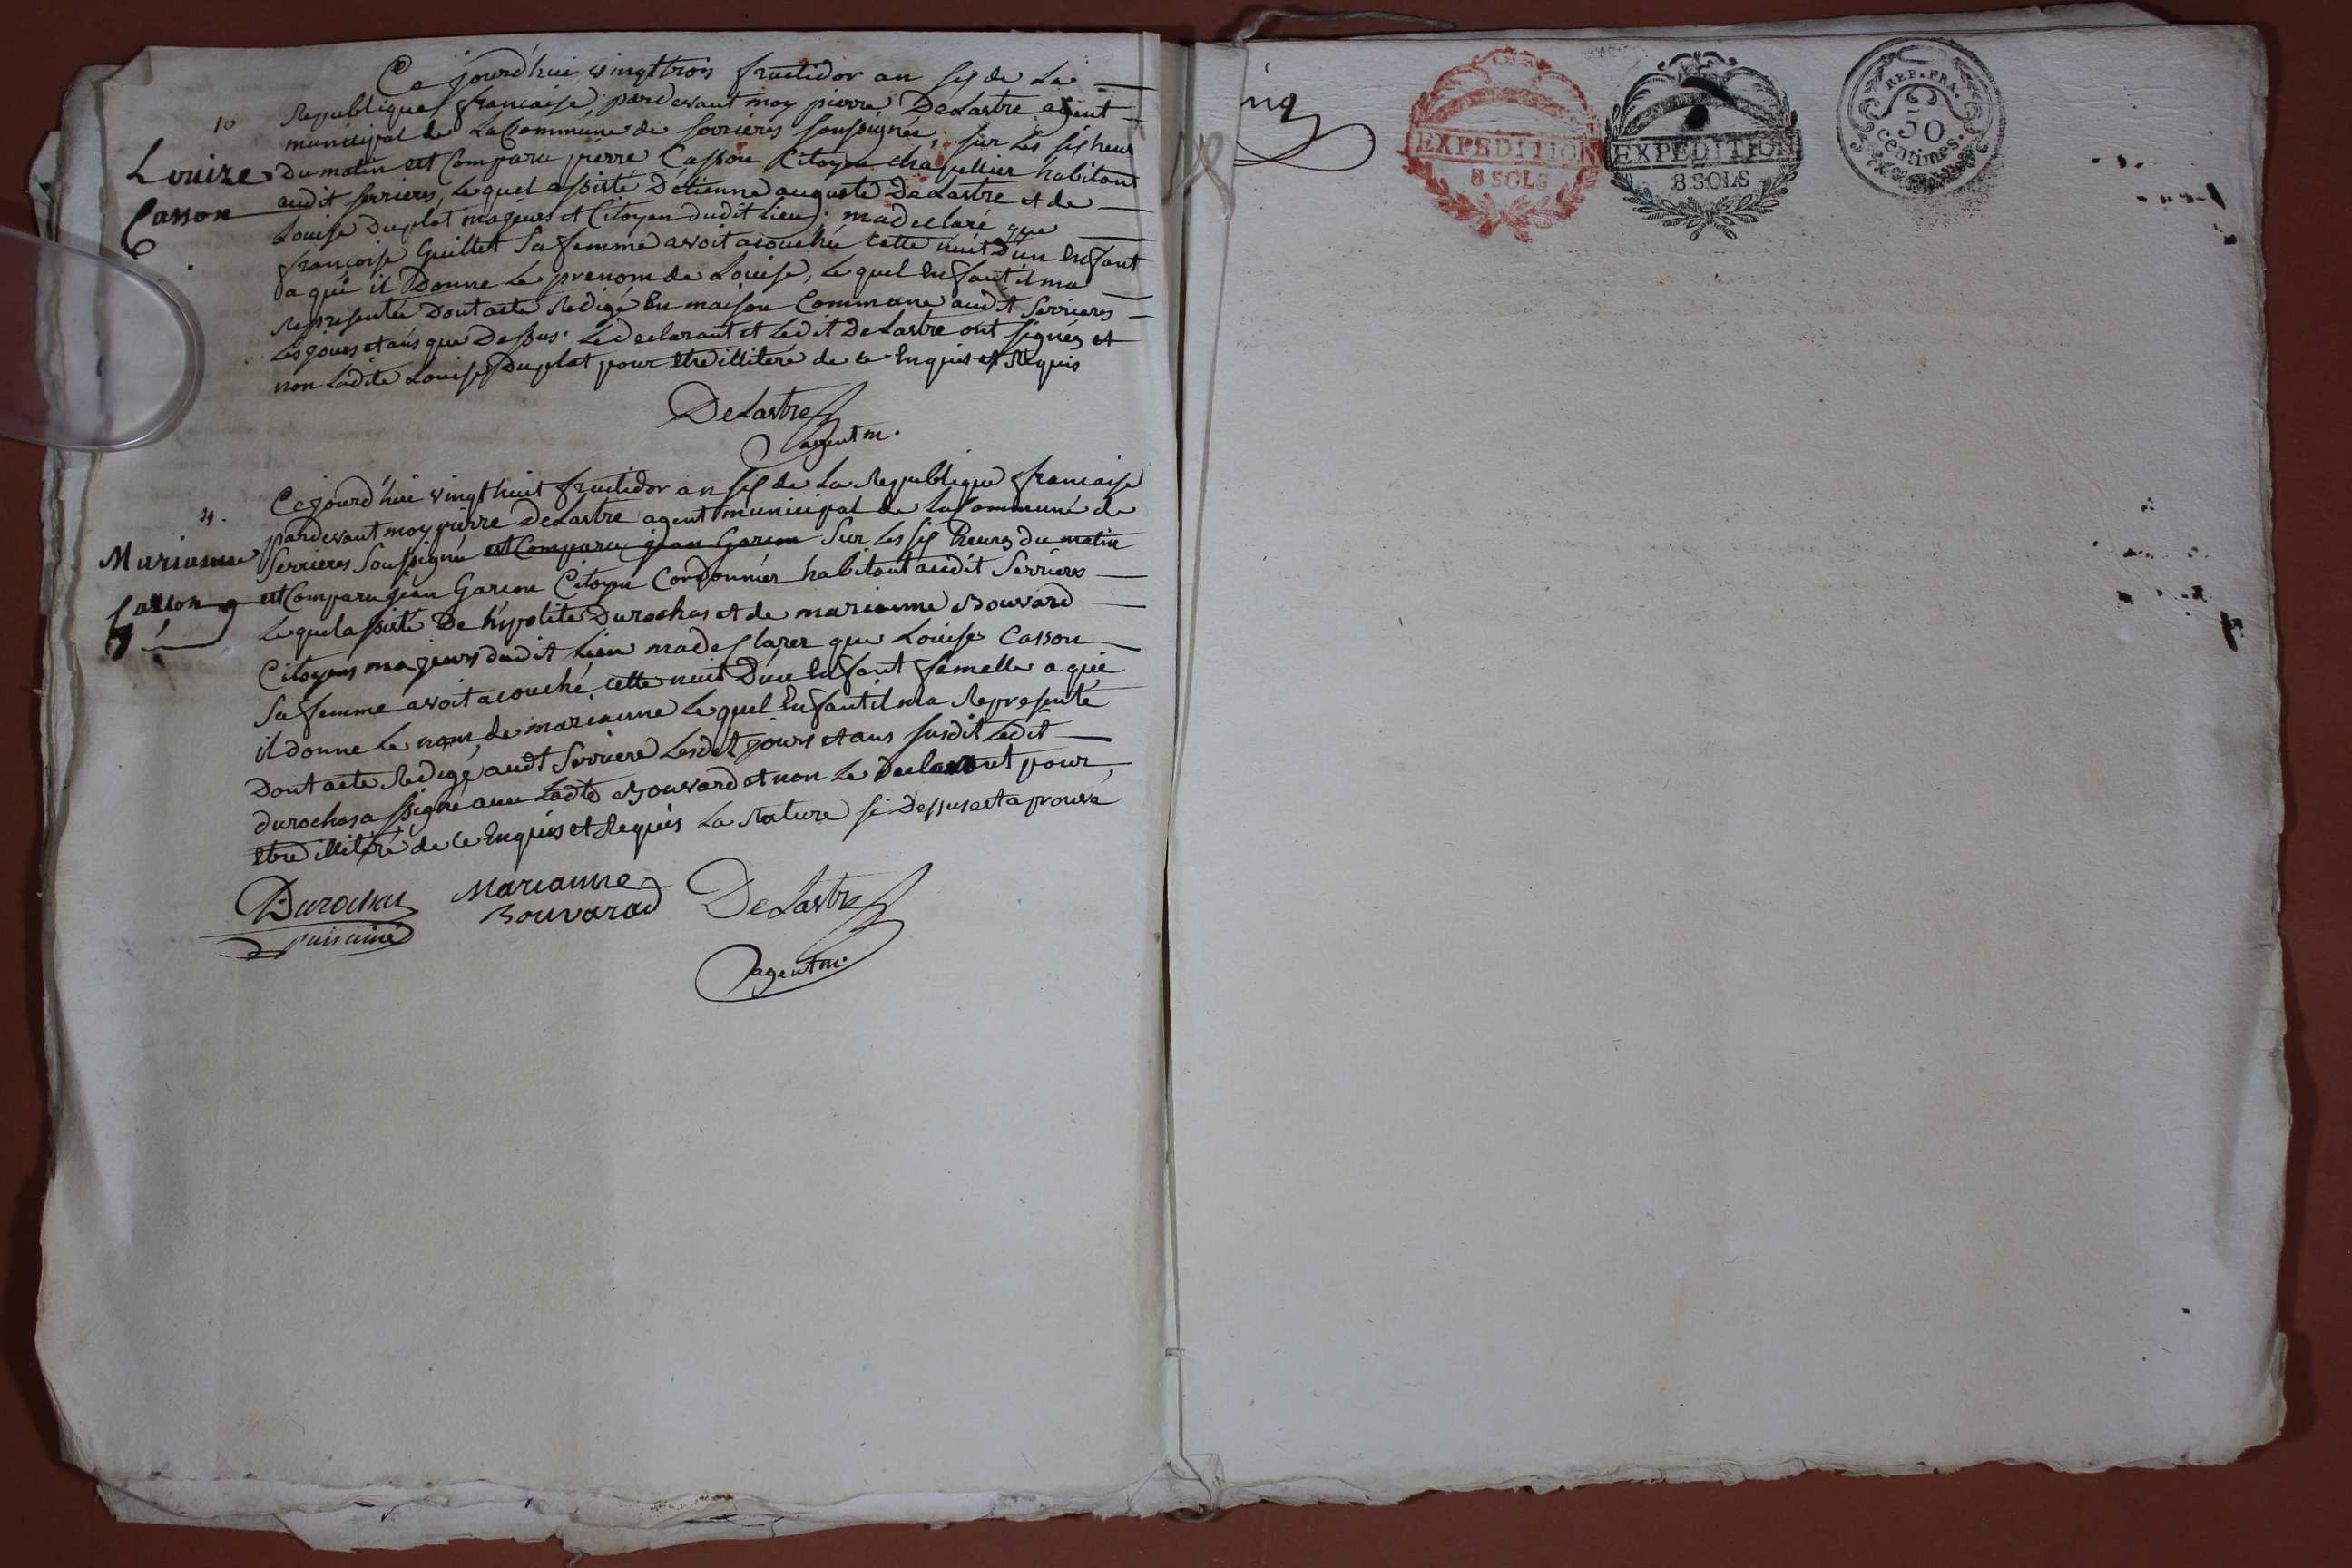 Ce jourd'hui vingt trois fructidor an six de La
10
Republique francaise pardevant moy pierre DeLastre agent
municipal de La Commune de serrieres soussignée, sur Les six heur
Louize
Casson
Du matin est Comparu pierre Casson Citoyen chapellier habitant
audit serrieres, Lequel assisté D'etienne auguste DeLastre et de
Louise Duplat majeurs et Citoyen dudit Lieu; ma declaré que
françoise Guillet Sa femme avoit acouché cette nuit D'un Enfant
a qui il Donne Le prenom de Louise, Le quel Enfant il ma
Representée Dont acte Redigé En maison Commune audit Serrieres
Les jours et ans que Dessus. Le declarant et Ledit DeLastre ont signés et
non Ladite Louise Duplat pour Etre illiteré de ce Enquis et Requis
DeLastre
agent m.
Ce jourd'hui vingt huit fructidor an six de La Republique francaise
pardevant moy pierre DeLastre agent municipal de La Commune de
Marianne
Serrieres Soussigné est Comparu jean Garcon Sur Les six heures du matin
est Comparu jean Garcon Citoyen Cordonnier habitant audit Serrieres
Lequel assisté De hypolite Durochas et de marianne Bouvard
Citoyens majeurs dudit Lieu ma declarer que Louise Casson
Sa femme avoit acouché cette nuit D'un Enfant femelle a qui
il donne Le nom de marianne Le quel Enfant il ma Representé
Dont acte Redigé audt Serriere Lesdit jours et ans susdit Ledit
durochas a signé avec Ladte Bouvard et non Le Declarant pour
Etre illiteré de ce Enquis et Requis La Rature si Dessus est aprouvé
Durochas
Marianne
Bouvarad
DeLastre
agent m.
EXPEDITION
8 SOLS
EXPEDITION
8 SOLS
REP. FRA.
50
Centimes.